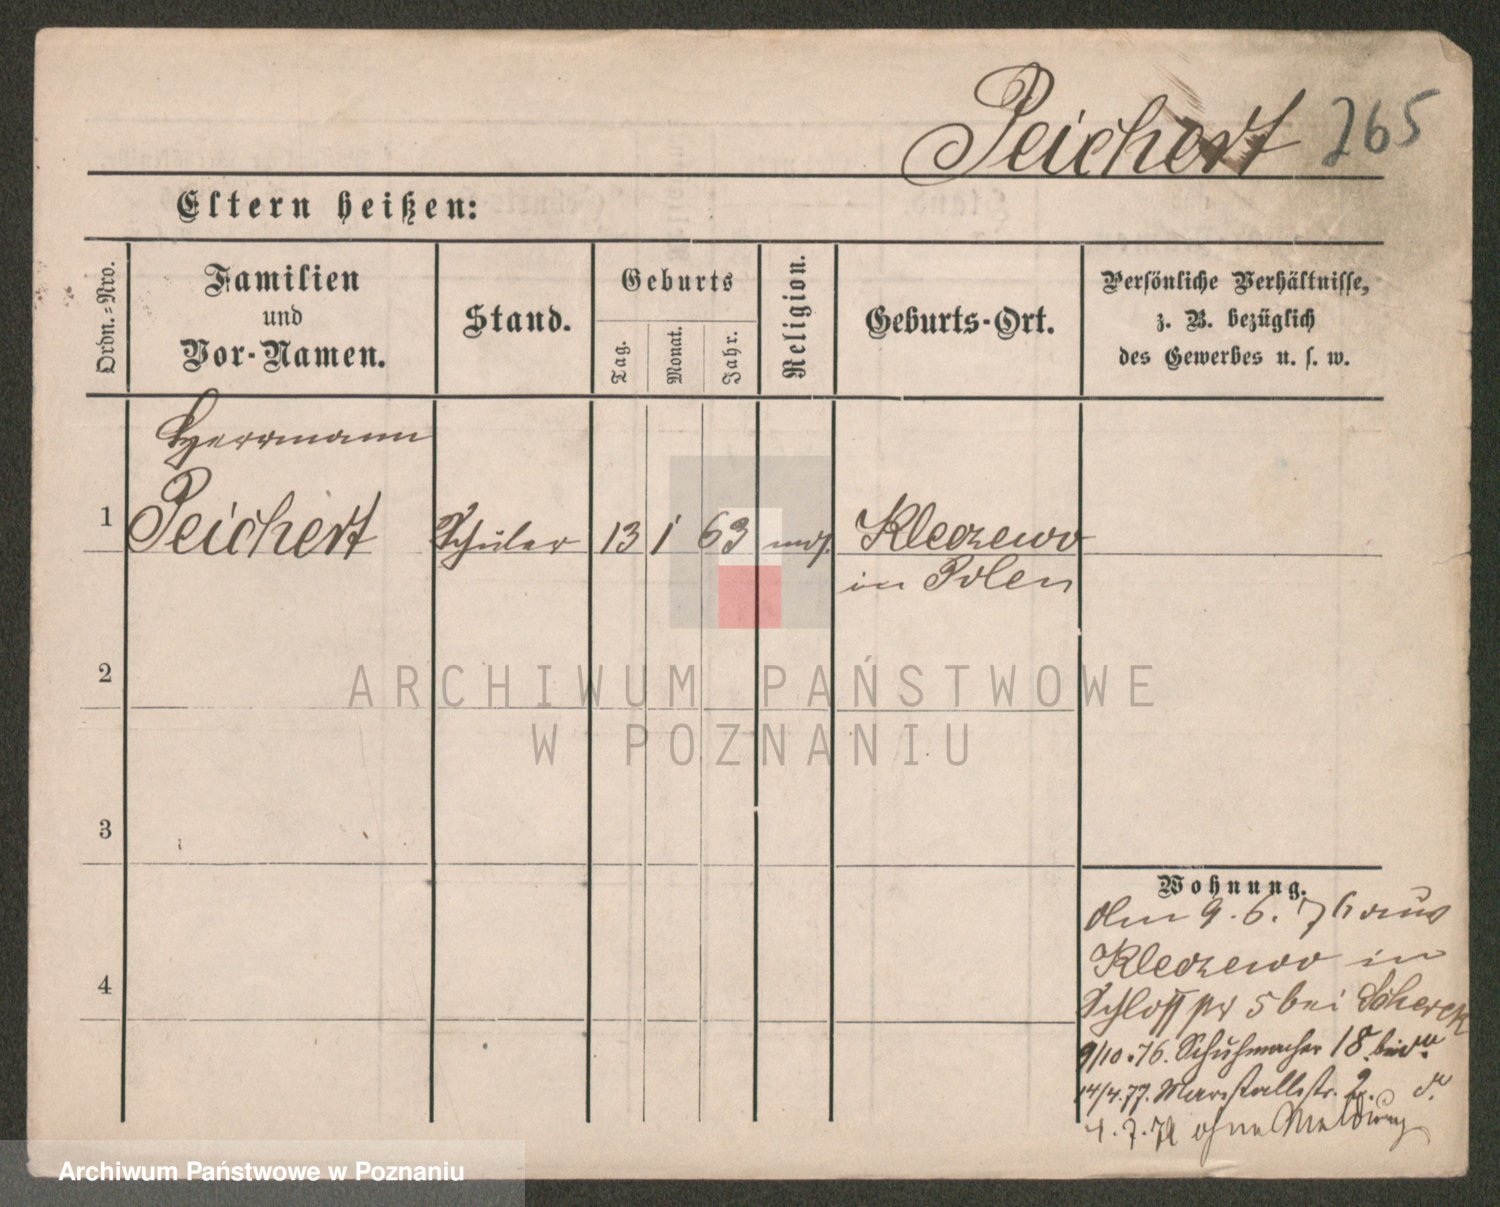 Peichert 265
Eltern heißen:
Ordn.-Nro.
Familien
und
Vor-Namen.
Stand.
Geburts
Tag.
Monat.
Jahr.
Religion.
Geburts-Ort.
Persönliche Verhältnisse,
z. B. bezüglich
des Gewerbes u. s. w.
Herrmann
1 Peichert Schüler 13 1 63 mos. Kleczewo
in Polen
2
3
4
Wohnung.
Am 9. 6. 76 aus
Kleczewo in
Schlosspr 5 bei Scherek
9/10.76. Schuhmacher 18. bei
14/4.77. Marstallstr. 2. d.
4.7.78 ohne Meldung
ARCHIWUM PAŃSTWOWE
W POZNANIU
Archiwum Państwowe w Poznaniu